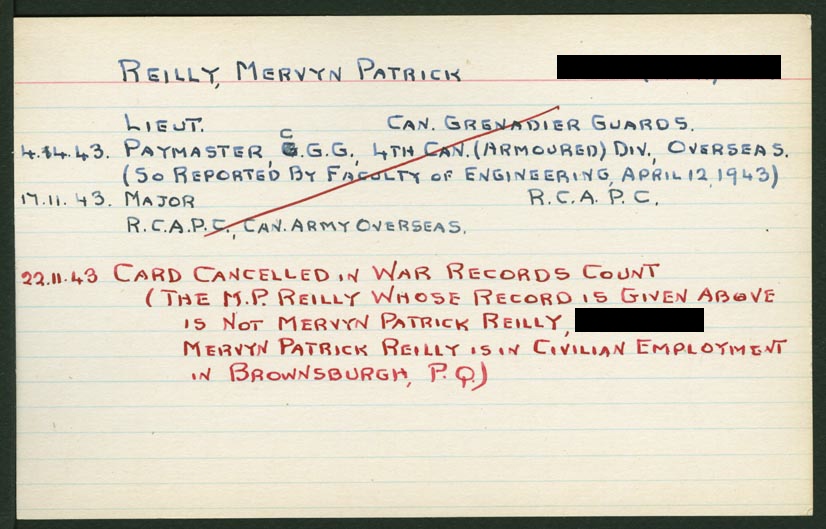 REILLY, MERVYN PATRICK
LIEUT. CAN. GRENADIER GUARDS.
4.14.43. PAYMASTER, C.G.G., 4TH CAN. (ARMOURED) DIV., OVERSEAS.
(SO REPORTED BY FACULTY OF ENGINEERING, APRIL 12, 1943)
17.11.43. MAJOR R.C.A.P.C.
R.C.A.P.C., CAN. ARMY OVERSEAS.
22.11.43 CARD CANCELLED IN WAR RECORDS COUNT
(THE M.P. REILLY WHOSE RECORD IS GIVEN ABOVE
IS NOT MERVYN PATRICK REILLY,
MERVYN PATRICK REILLY IS IN CIVILIAN EMPLOYMENT
IN BROWNSBURGH, P.Q.)